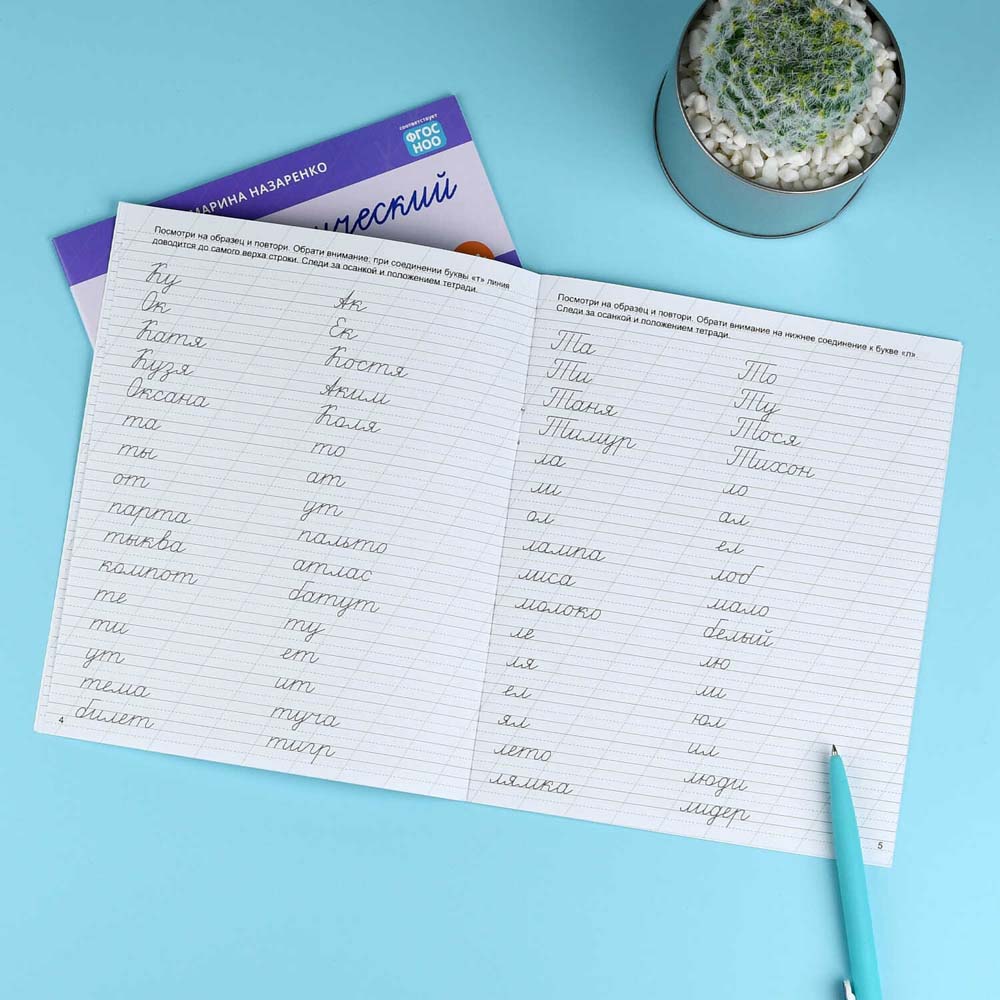 соответствует
ФГОС
НОО
МАРИНА НАЗАРЕНКО
Посмотри на образец и повтори. Обрати внимание: при соединении буквы «т» линия
доводится до самого верха строки. Следи за осанкой и положением тетради.
Ку
Ок
Катя
Кузя
Оксана
та
ты
от
парта
тыква
компот
те
ти
ут
тема
билет
Ак
Ек
Костя
Аким
Коля
то
ат
ут
пальто
атлас
батут
ту
ет
ит
туча
тигр
4
Посмотри на образец и повтори. Обрати внимание на нижнее соединение к букве «л».
Следи за осанкой и положением тетради.
Та
Ти
Таня
Тимур
ла
ли
ол
лампа
лиса
молоко
ле
ля
ел
ял
лето
лямка
То
Ту
Тося
Тихон
ло
ал
ел
лоб
мало
белый
лю
ли
юл
ил
люди
лидер
5